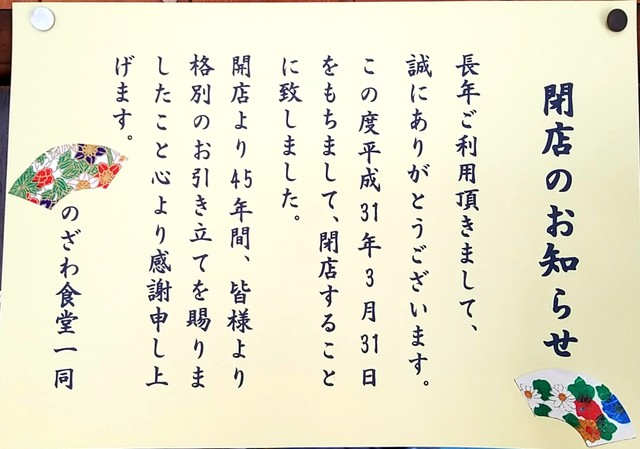 閉店のお知らせ
長年ご利用頂きまして、
誠にありがとうございます。
この度平成31年3月31日
をもちまして、閉店すること
に致しました。
開店より45年間、皆様より
格別のお引き立てを賜りま
したこと心より感謝申し上
げます。
のざわ食堂一同